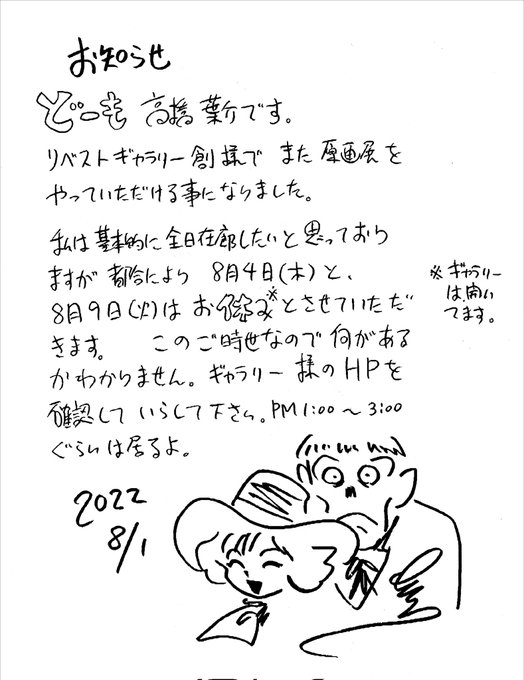 お知らせ
どーも 高橋葉介です。
リベストギャラリー創様で また原画展を
やっていただける事になりました。
私は基本的に全日在廊したいと思っており
ますが 都合により 8月4日(木)と、
8月9日(火)は お休み※とさせていただ
きます。 このご時世なので 何がある
かわかりません。ギャラリー様のHPを
確認して いらして下さい。PM1:00〜3:00
ぐらいは居るよ。
※ギャラリー
は開い
てます。
2022
8/1